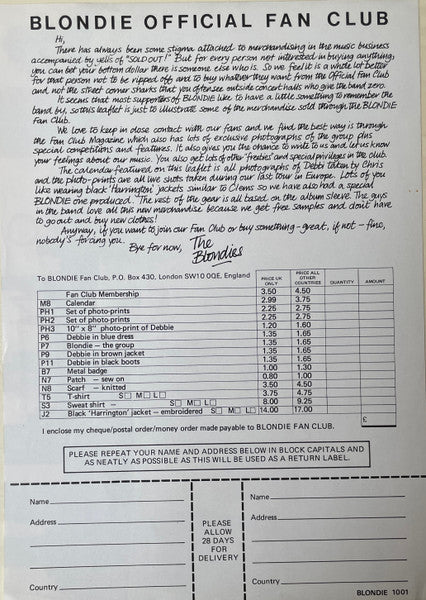 BLONDIE OFFICIAL FAN CLUB
Hi,
There has always been some stigma attached to merchandising in the music business
accompanied by yells of "SOLD OUT!" But for every person not interested in buying anything,
you can bet your bottom dollar there is someone else who is. So we feel it is a whole lot better
for that person not to be ripped off and to buy whatever they want from the Official Fan Club
and not the street corner sharks that you often see outside concert halls who give the band zero.
It seems that most supporters of BLONDIE like to have a little something to remember the
band by, so this leaflet is just to illustrate some of the merchandise sold through the BLONDIE
Fan Club.
We love to keep in close contact with our fans and we find the best way is through
the Fan Club Magazine which also has lots of exclusive photographs of the group plus
special competitions and features. It also gives you the chance to write to us and let us know
your feelings about our music. You also get lots of other 'freebies' and special privileges in the club.
The calendar featured on this leaflet is all photographs of Debbi taken by Chris
and the photo-prints are all live shots taken during our last tour in Europe. Lots of you
like wearing black 'Harrington' jackets similar to Clems so we have also had a special
BLONDIE one produced. The rest of the gear is all based on the album sleeve. The guys
in the band love all this new merchandise because we get free samples and don't have
to go out and buy new clothes!
Anyway, if you want to join our Fan Club or buy something - great, if not - fine,
nobody's forcing you.
Bye for now, The
Blondies
To BLONDIE Fan Club, P.O. Box 430, London SW10 0QE, England
PRICE UK ONLY PRICE ALL OTHER COUNTRIES QUANTITY AMOUNT
Fan Club Membership 3.50 4.50
M8 Calendar 2.99 3.75
PH1 Set of photo-prints 2.25 2.75
PH2 Set of photo-prints 2.25 2.75
PH3 10" x 8" photo-print of Debbie 1.20 1.60
P6 Debbie in blue dress 1.35 1.65
P7 Blondie – the group 1.35 1.65
P9 Debbie in brown jacket 1.35 1.65
P11 Debbie in black boots 1.35 1.65
B7 Metal badge 1.00 1.30
N7 Patch – sew on 0.80 1.00
N8 Scarf – knitted 3.50 4.50
T5 T-shirt S M L 3.75 4.75
S3 Sweat shirt – S M L 8.00 9.25
J2 Black 'Harrington' jacket – embroidered S M L 14.00 17.00
£
I enclose my cheque/postal order/money order made payable to BLONDIE FAN CLUB.
PLEASE REPEAT YOUR NAME AND ADDRESS BELOW IN BLOCK CAPITALS AND
AS NEATLY AS POSSIBLE AS THIS WILL BE USED AS A RETURN LABEL.
Name
Address
Country
PLEASE
ALLOW
28 DAYS
FOR
DELIVERY
Name
Address
Country
BLONDIE 1001